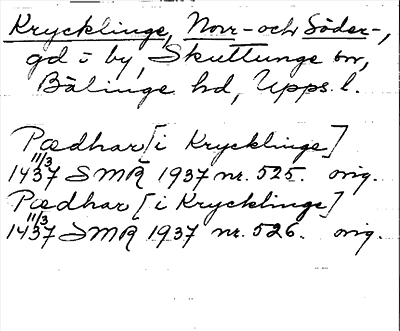 Krycklinge, Norr- och Söder-,
gd i by, Skuttunge sn,
Bälinge hd, Upps. l.
Pædhar [i Krycklinge]
11/3
1437 SMR 1937 nr. 525. orig.
Pædhar [i Krycklinge]
11/3
1437 SMR 1937 nr. 526. orig.